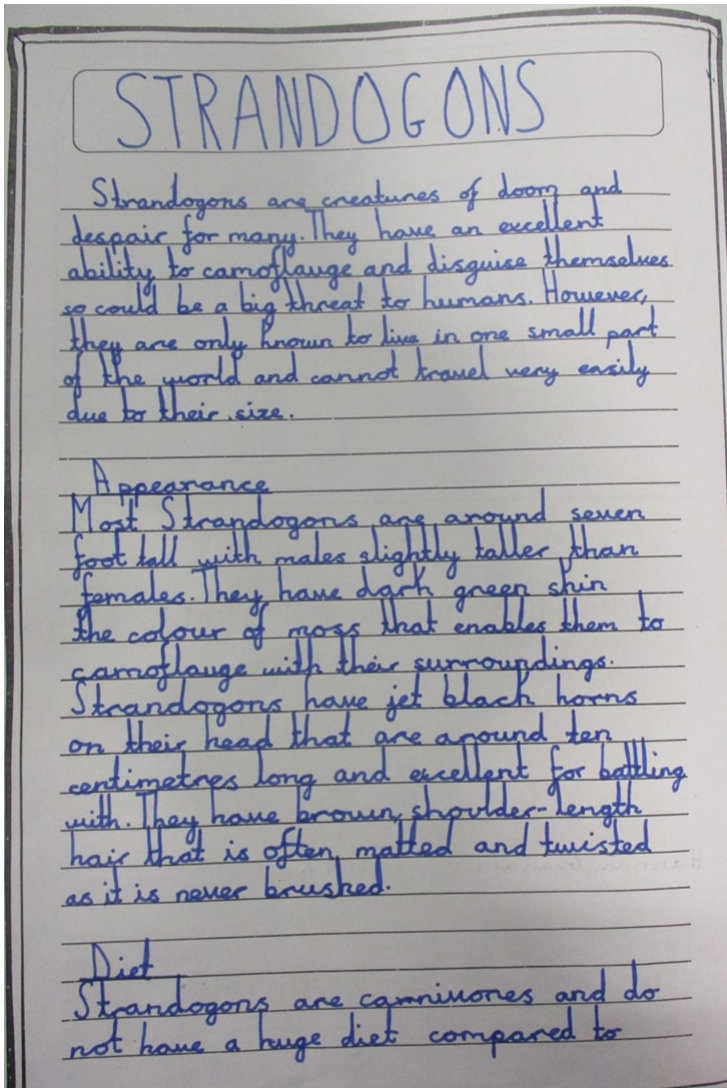 STRANDOGONS
Strandogons are creatures of doom and
despair for many. They have an excellent
ability to camoflauge and disguise themselves
so could be a big threat to humans. However,
they are only known to live in one small part
of the world and cannot travel very easily
due to their size.
Appearance
Most Strandogons are around seven
foot tall with males slightly taller than
females. They have dark green skin
the colour of moss that enables them to
camoflauge with their surroundings.
Strandogons have jet black horns
on their head that are around ten
centimetres long and excellent for battling
with. They have brown, shoulder-length
hair that is often matted and twisted
as it is never brushed.
Diet
Strandogons are carnivores and do
not have a huge diet compared to